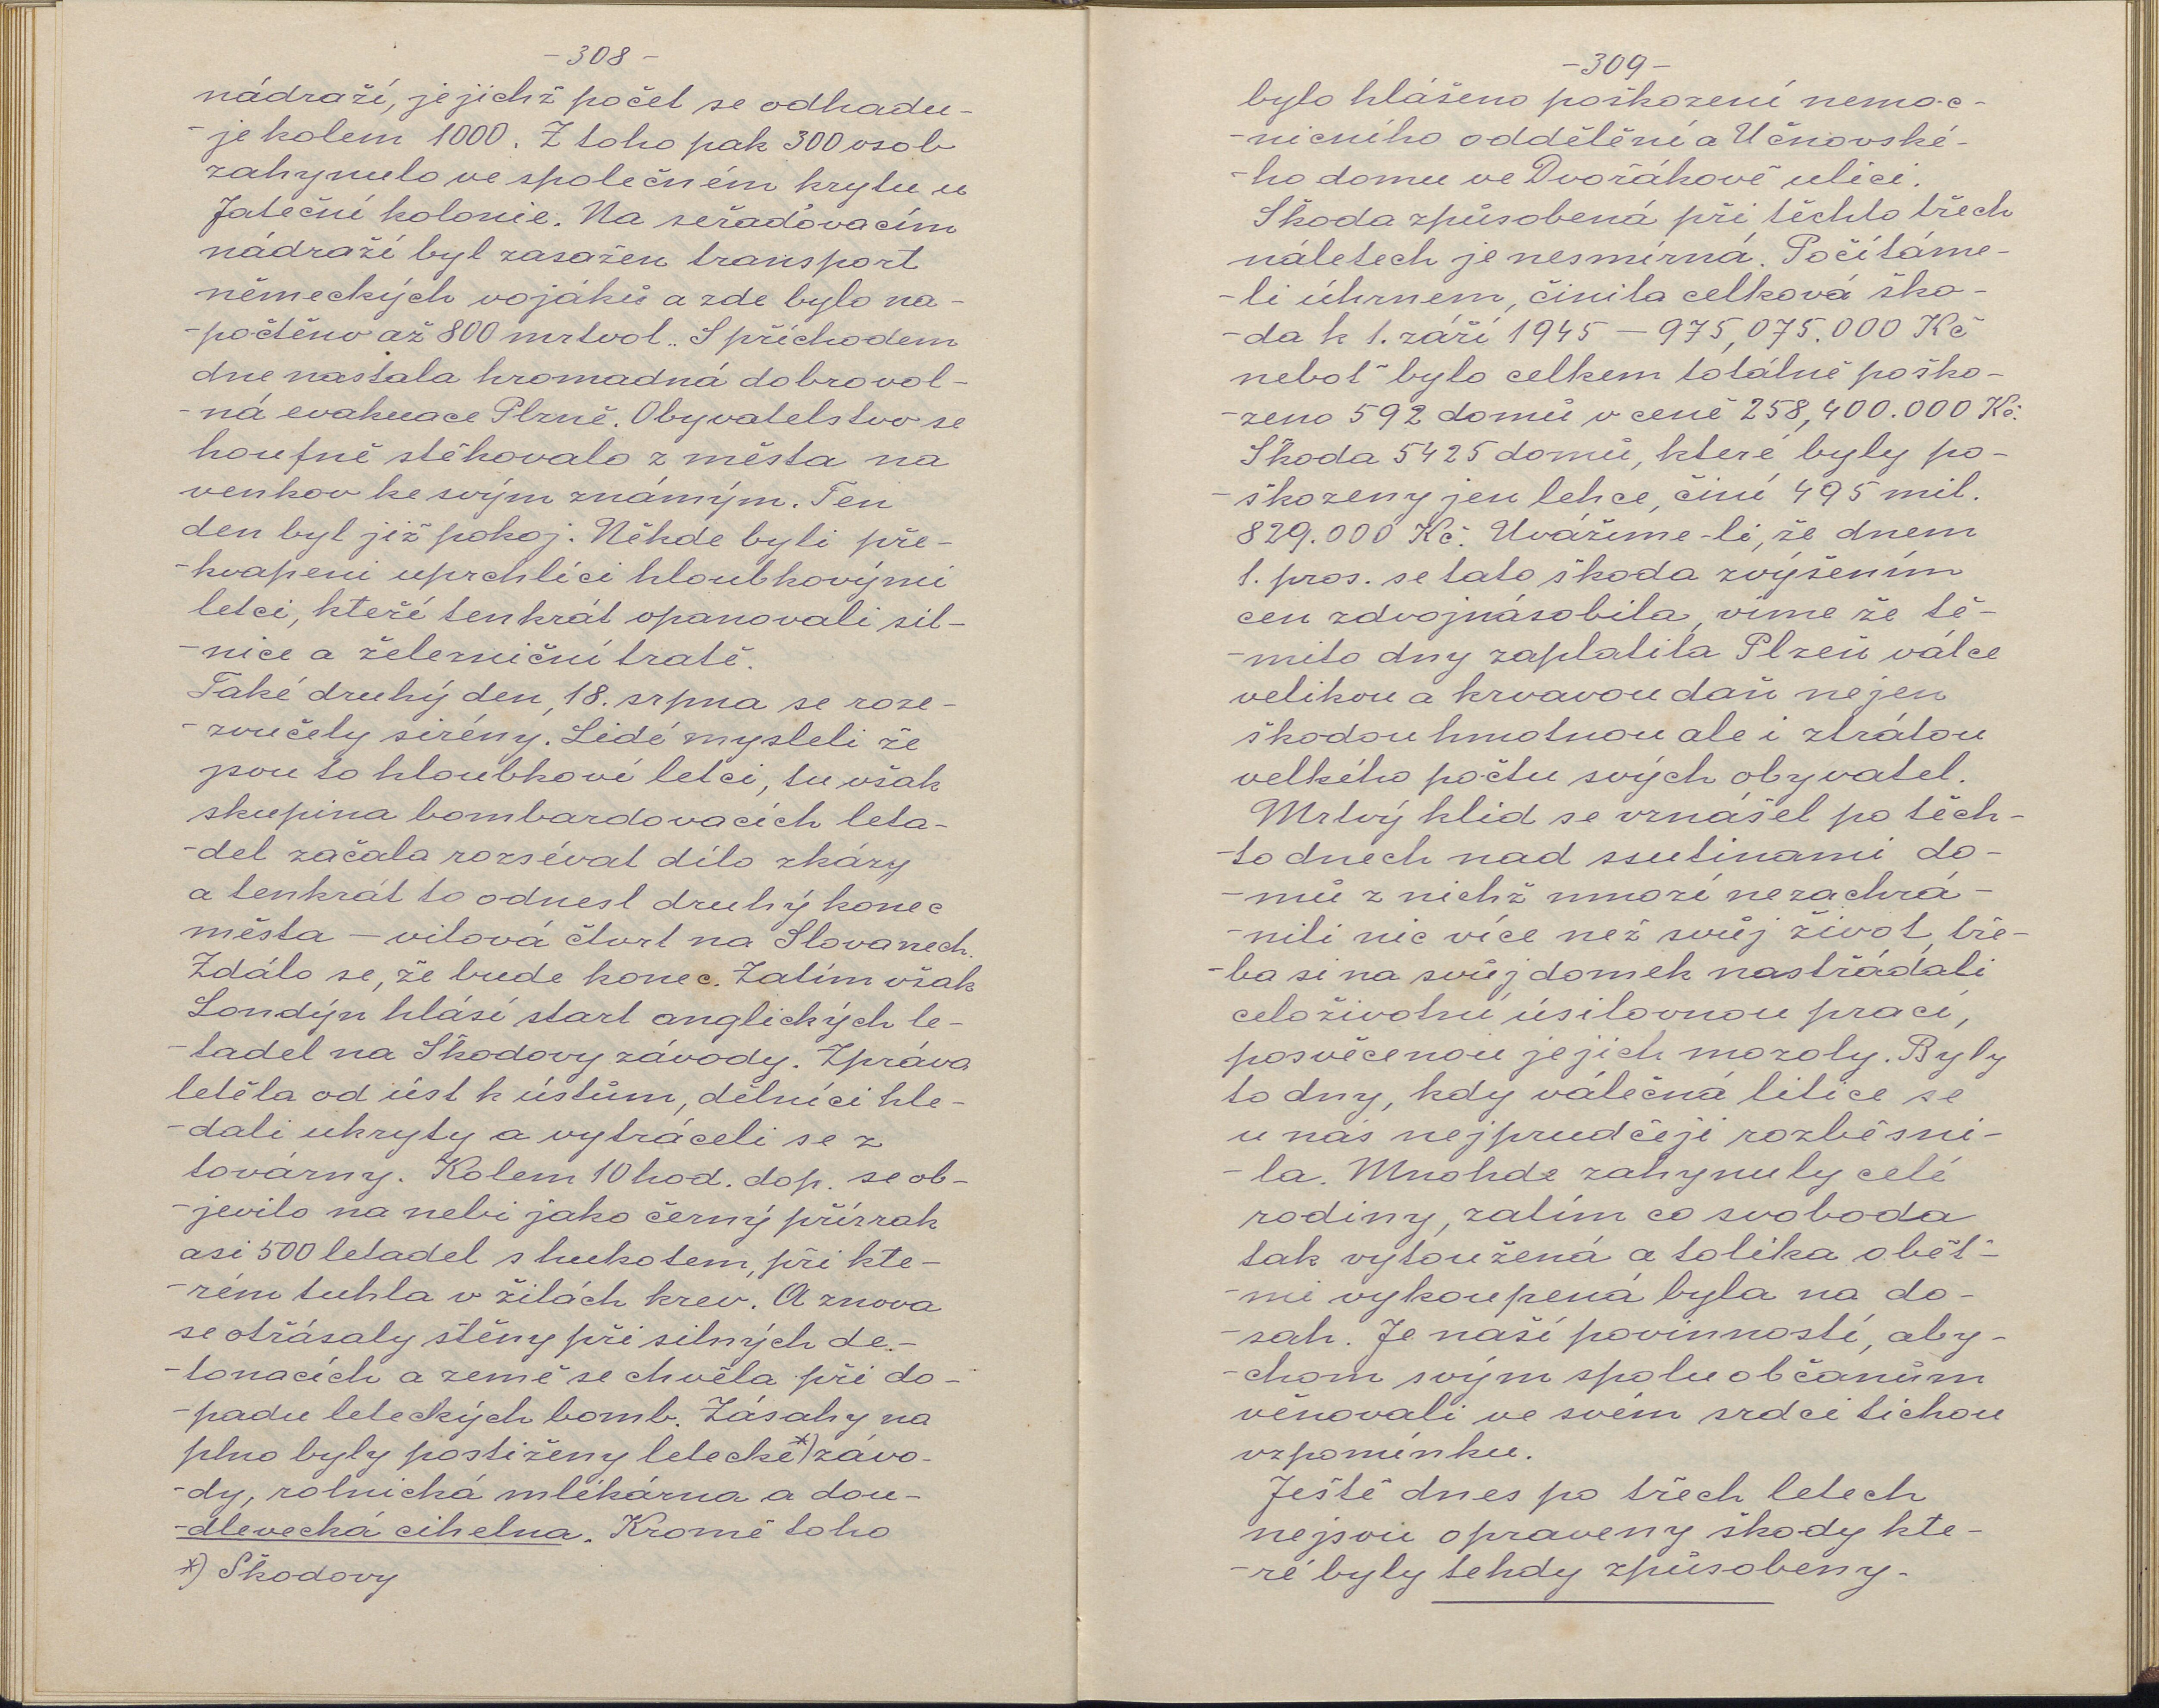 -308-
nádraží, jejichž počet se odhadu-
-je kolem 1000. Z toho pak 300 osob
zahynulo ve společném krytu u
Jateční kolonie. Na seřaďovacím
nádraží byl zasažen transport
německých vojáků a zde bylo na-
-počtěno až 800 mrtvol.. S příchodem
dne nastala hromadná dobrovol-
-ná evakuace Plzně. Obyvatelstvo se
houfně stěhovalo z města na
venkov ke svým známým. Ten
den byl již pokoj. Někde byli pře-
-kvapeni uprchlíci hloubkovými
letci, kteří tenkrát opanovali sil-
-nice a železniční tratě.
Také druhý den, 18. srpna se roze-
-zvučely sirény. Lidé mysleli že
jsou to hloubkoví letci, tu však
skupina bombardovacích leta-
-del začala rozsévat dílo zkázy
a tenkrát to odnesl druhý konec
města - vilová čtvrt na Slovanech.
Zdálo se, že bude konec. Zatím však
Londýn hlásí start anglických le-
-tadel na Škodovy závody. Zpráva
letěla od úst k ústům, dělníci hle-
-dali ukryty a vytráceli se z
továrny. Kolem 10 hod. dop. se ob-
-jevilo na nebi jako černý přízrak
asi 500 letadel s hukotem, při kte-
-rém tuhla v žilách krev. A znova
se otřásaly stěny při silných de-
-tonacích a země se chvěla při do-
-padu leteckých bomb. Zásahy na
plno byly postiženy letecké*) závo-
-dy, rolnická mlékárna a dou-
-dlevecká cihelna. Kromě toho
*) Škodovy
-309-
bylo hlášeno poškození nemoc-
-nicního oddělění a Učňovské-
-ho domu ve Dvořákově ulici.
Škoda způsobená při těchto třech
náletech je nesmírná. Počítáme-
-li úhrnem, činila celková ško-
-da k 1. září 1945 - 975,075.000 Kč
neboť bylo celkem totálně poško-
-zeno 592 domů v ceně 258,400.000 Kč.
Škoda 5425 domů, které byly po-
-škozeny jen lehce, činí 495 mil.
829.000 Kč. Uvážíme-li, že dnem
1. pros. se tato škoda zvýšením
cen zdvojnásobila, víme že tě-
-mito dny zaplatila Plzeň válce
velikou a krvavou daň nejen
škodou hmotnou ale i ztrátou
velkého počtu svých obyvatel.
Mrtvý klid se vznášel po těch-
-to dnech nad ssutinami do-
-mů z nichž mnozí nezachrá-
-nili nic více než svůj život, tře-
-ba si na svůj domek nastřádali
celoživotní úsilovnou prací,
posvěcenou jejich mozoly. Byly
to dny, kdy válečná litice se
u nás nejprudčeji rozběsni-
-la. Mnohde zahynuly celé
rodiny, zatím co svoboda
tak vytoužená a tolika obět-
-mi vykoupená byla na do-
-sah. Je naší povinností, aby-
-chom svým spoluobčanům
věnovali ve svém srdci tichou
vzpomínku.
Ještě dnes po třech letech
nejsou opraveny škody kte-
-ré byly tehdy způsobeny.